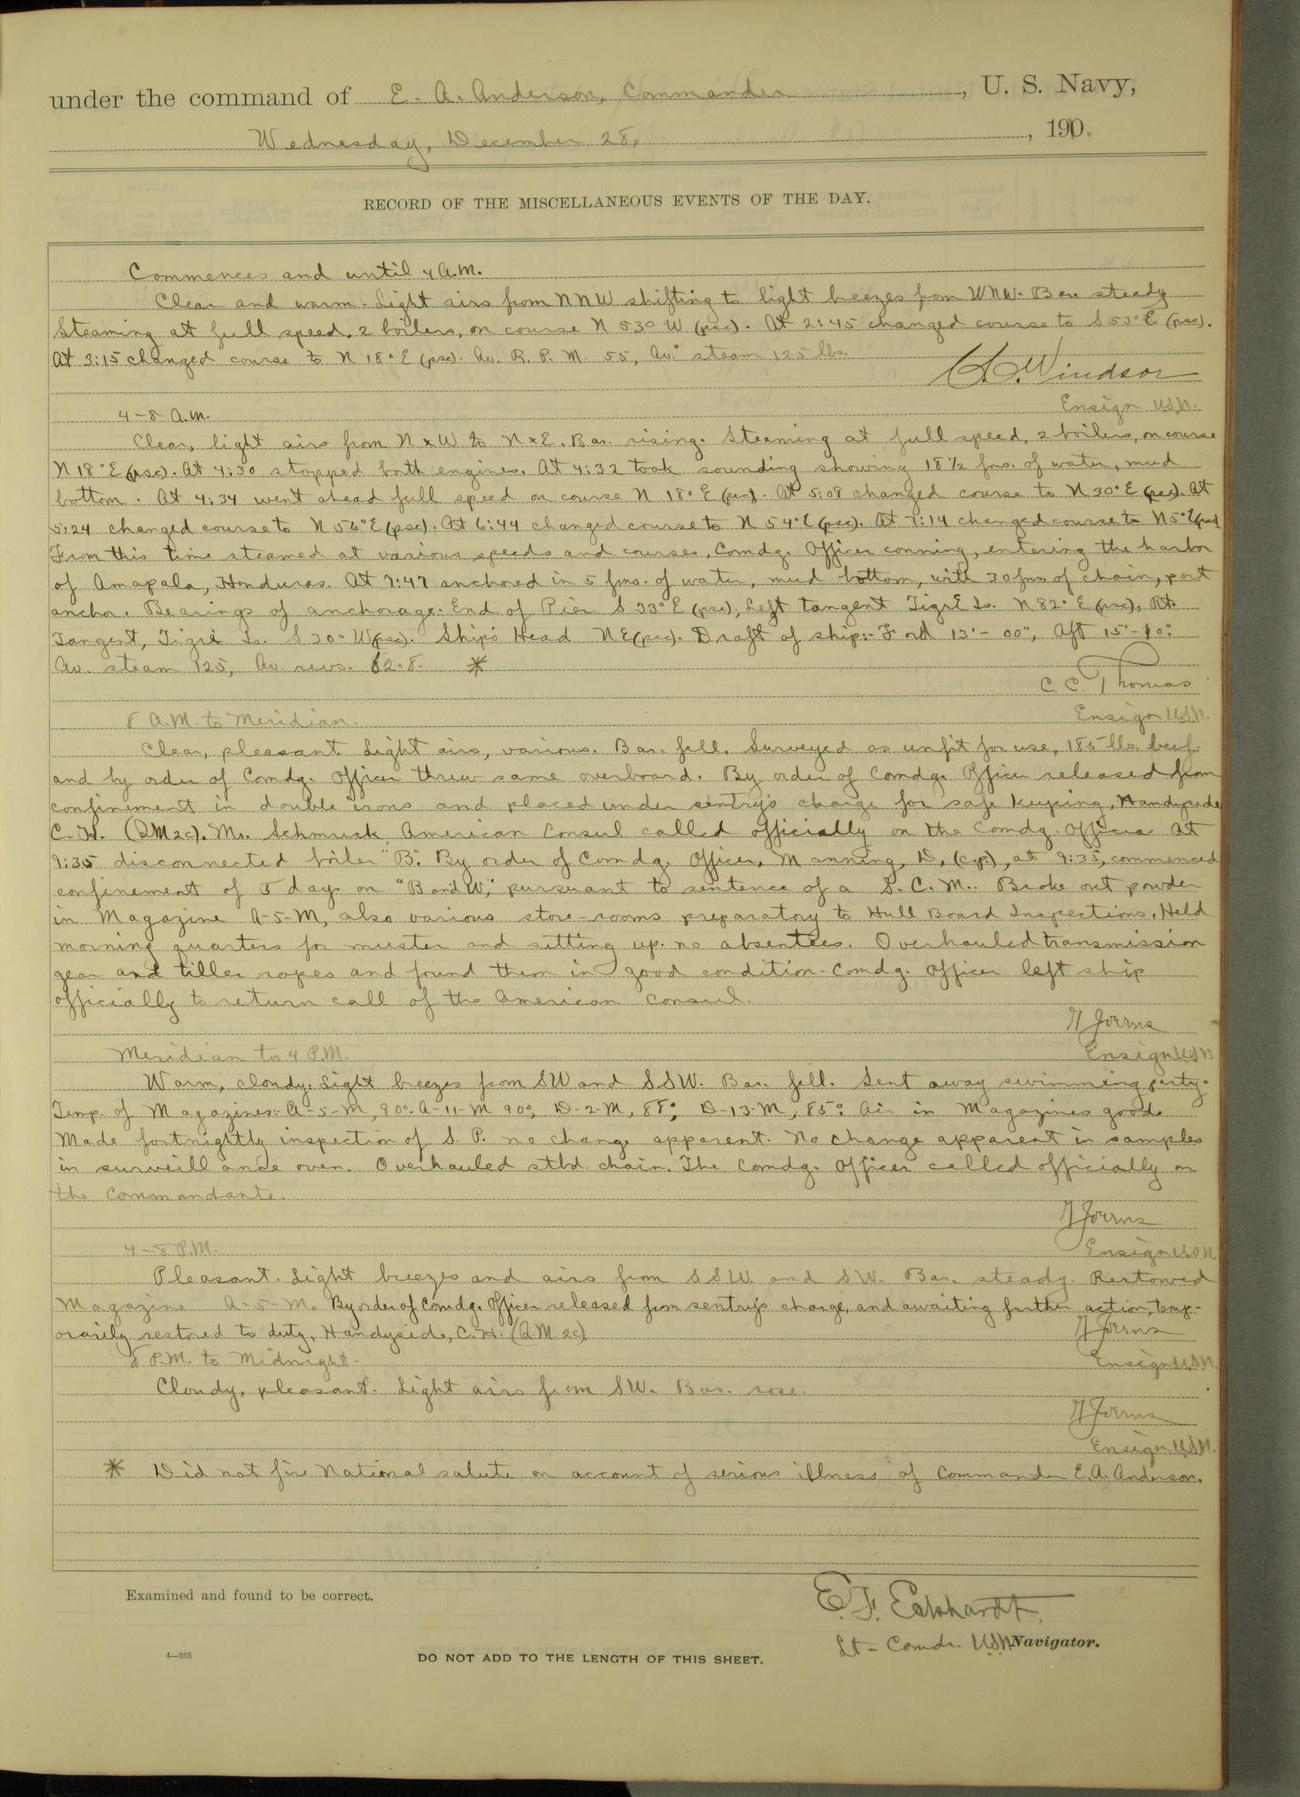 under the command of E. A. Anderson, Commander, U. S. Navy,
Wednesday, December 28, 1910.
RECORD OF THE MISCELLANEOUS EVENTS OF THE DAY.
Commences and until 4 A.M.
Clear and warm. Light airs from NNW shifting to light breezes from WNW. Bar. steady
Steaming at full speed, 2 boilers, on course N 53° W (psc). At 2:45 changed course to S 53° E (psc).
At 3:15 changed course to N 18° E (psc). Av. R. P. M. 55, Av. steam 125 lbs.
Windsor
Ensign USN.
4-8 A.M.
Clear, light airs from N x W to N x E. Bar. rising. Steaming at full speed, 2 boilers, on course
N 18° E (psc). At 4:30 stopped both engines. At 4:32 took sounding showing 18 1/2 fms. of water, mud
bottom. At 4:34 went ahead full speed on course N 18° E (psc). At 5:08 changed course to N 30° E (psc). At
5:24 changed course to N 56° E (psc). At 6:44 changed course to N 54° E (psc). At 7:14 changed course to N 5° E (psc)
From this time steamed at various speeds and courses, Comdg. Officer conning, entering the harbor
of Amapala, Honduras. At 7:47 anchored in 5 fms. of water, mud bottom, with 30 fms of chain, port
anchor. Bearings of anchorage: End of Pier S 33° E (psc), Left tangent Tigre Is. N 82° E (psc), Rt.
Tangent, Tigre Is. S 30° W (psc). Ship's Head NE (psc). Draft of ship:- For'd 13'-00", Aft 15'-10".
Av. steam 125, Av. revs. 52.8. *
C. C. Thomas
Ensign USN.
8 A.M. to Meridian.
Clear, pleasant. Light airs, various. Bar. fell. Surveyed as unfit for use, 185 lbs. beef
and by order of Comdg. Officer threw same overboard. By order of Comdg. Officer released from
confinement in double irons and placed under sentry's charge for safe keeping, Handyside
C. H. (QM2c). Mr. Schmuck American Consul called officially on the Comdg. Officer. At
9:35 disconnected boiler "B". By order of Comdg. Officer, Manning, D, (c.p.), at 9:35, commenced
confinement of 5 days on "B and W," pursuant to sentence of a S. C. M. Broke out powder
in Magazine A-5-M, also various store-rooms preparatory to Hull Board Inspections. Held
morning quarters for muster and setting up. no absentees. Overhauled transmission
gear and tiller ropes and found them in good condition. Comdg. Officer left ship
officially to return call of the American Consul.
G Joerns
Ensign USN
Meridian to 4 P.M.
Warm, cloudy. Light breezes from SW and SSW. Bar. fell. Sent away swimming party.
Temp. of Magazines:- A-5-M, 90°. A-11-M 90°, D-2-M, 88°, D-13-M, 85°. Air in Magazines good.
Made fortnightly inspection of S. P. no change apparent. No change apparent in samples
in surveillance oven. Overhauled stbd. chain. The Comdg. Officer called officially on
the Commandante.
G Joerns
Ensign USN
4-8 P.M.
Pleasant. Light breezes and airs from SSW. and SW. Bar. steady. Restowed
Magazine A-5-M. By order of Comdg. Officer released from sentry's charge, and awaiting further action, temp-
orarily restored to duty, Handyside, C.H. (Q.M. 2c)
G Joerns
8 P.M. to Midnight.
Ensign USN.
Cloudy, pleasant. Light airs from SW. Bar. rose.
G Joerns
Ensign USN.
* Did not fire National salute on account of serious illness of Commander E.A. Anderson.
Examined and found to be correct.
E. F. Eckhardt,
Lt-Comdr. USN Navigator.
4-265
DO NOT ADD TO THE LENGTH OF THIS SHEET.